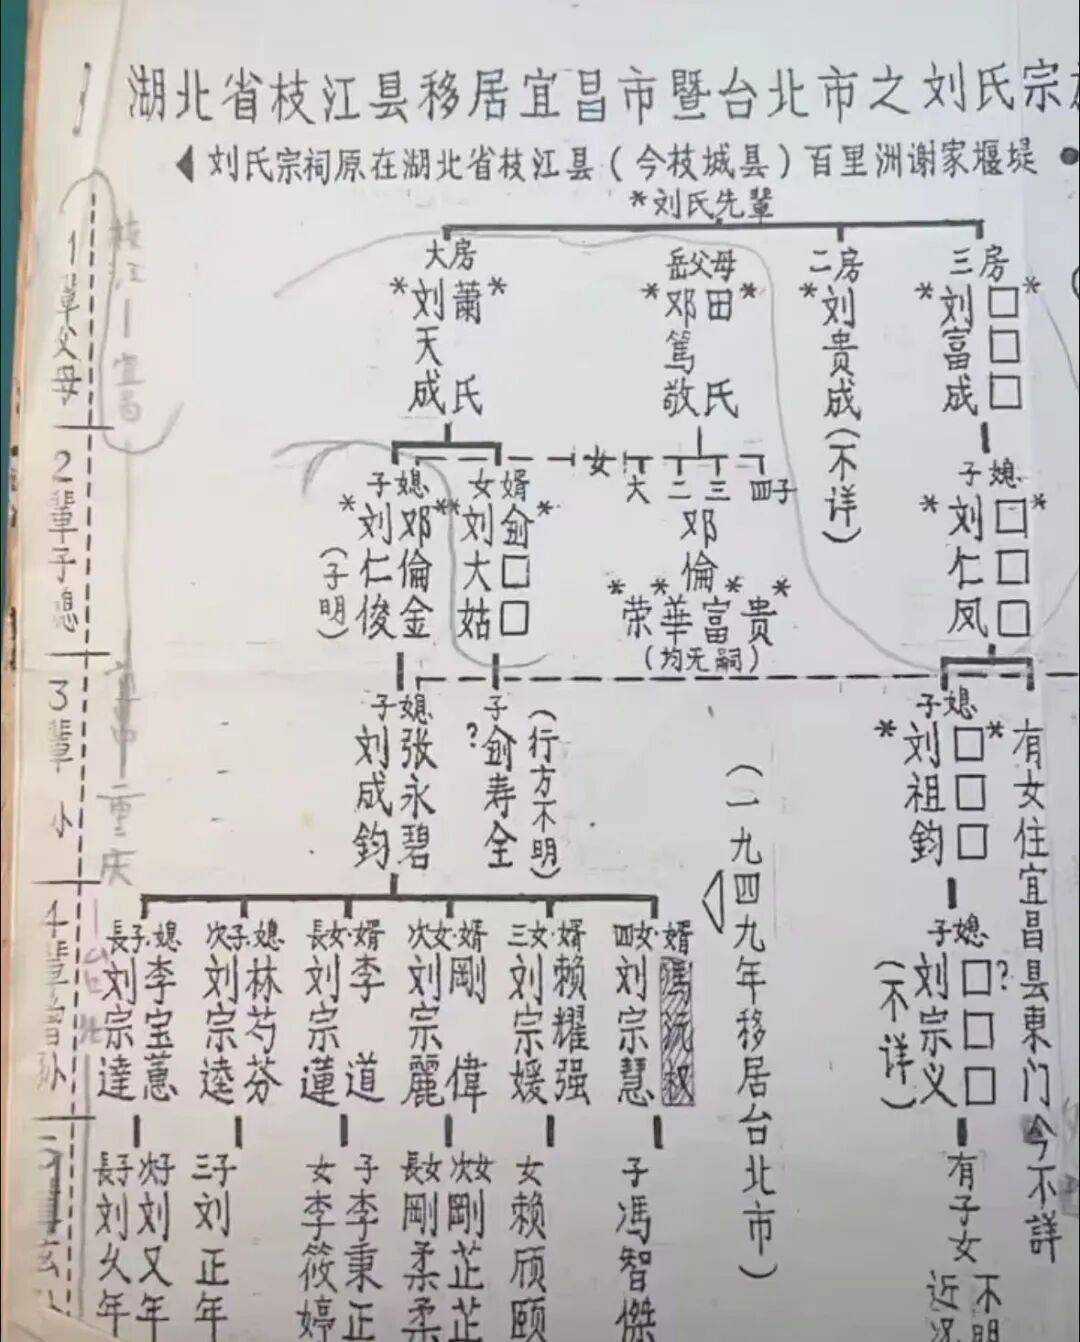 湖北省枝江县移居宜昌市暨台北市之刘氏宗
◀刘氏宗祠原在湖北省枝江县(今枝城县)百里洲谢家堰堤●
*刘氏先輩
1輩父母
大房
*刘天成
蕭氏*
岳父母
*邓篤敬
田氏*
二房
*刘贵成(不详)
三房
*刘富成
□□□*
2輩子媳
子媳
*刘仁俊
(子明)
邓倫金*
女婿
*刘大姑
俞□□*
女
大二三四子
邓倫
*荣*華*富*贵
(均无嗣)
子媳
*刘仁凤
□□□*
3輩小
子媳
刘成鈞
张永碧
子
?俞寿全
(行方不明)
(一九四九年移居台北市)
子媳
*刘祖鈞
□□□*
有女住宜昌县東门今不詳
4輩曾孙
長子·媳
刘宗達
李宝蕙
次子·媳
刘宗逵
林芍芬
長女·婿
刘宗蓮
李道
次女·婿
刘宗麗
剛偉
三女·婿
刘宗媛
赖耀强
四女·婿
刘宗慧
子媳
刘宗义
□□□?
(不详)
長子
刘久年
次子
刘又年
三子
刘正年
女
李筱婷
子
李秉正
長女
剛柔柔
次女
剛芷芷
女
赖颀颐
子
馮智傑
有子女
近况不明
枝江—宜昌
重庆
台北